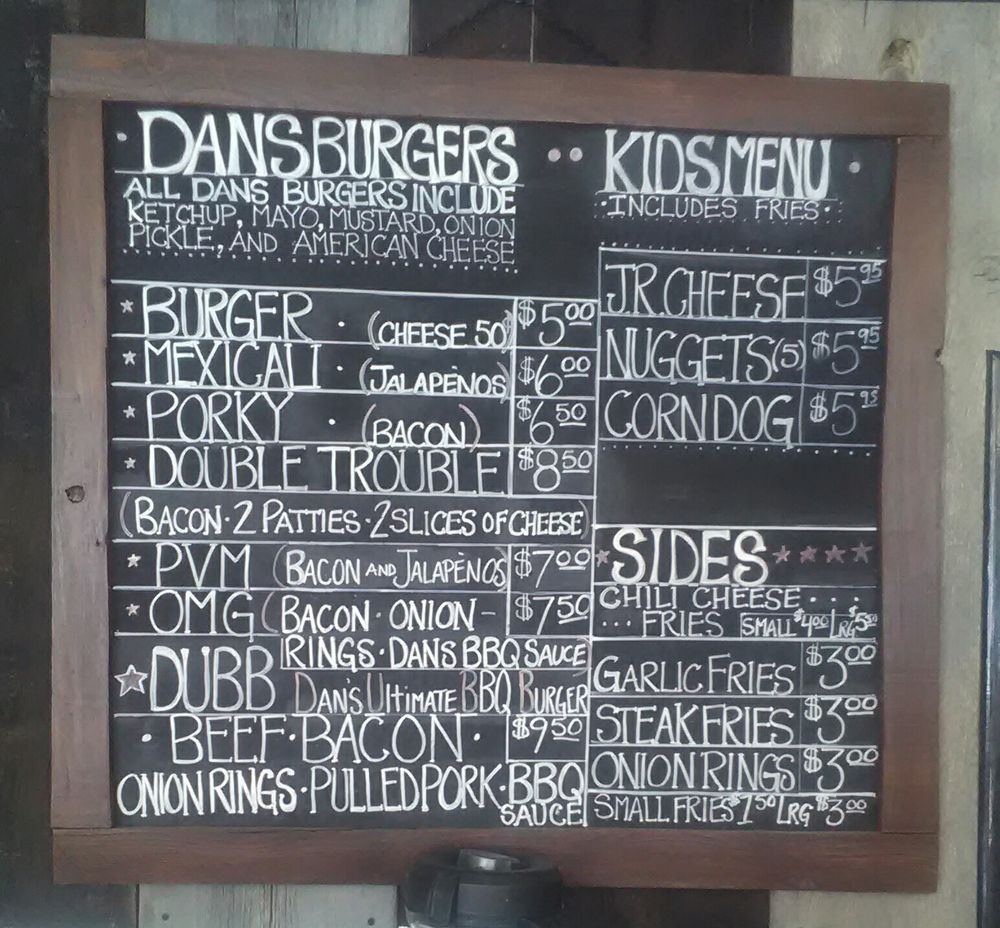 DANS BURGERS
ALL DANS BURGERS INCLUDE
KETCHUP, MAYO, MUSTARD, ONION
PICKLE, AND AMERICAN CHEESE
BURGER · (CHEESE 50) $5.00
MEXICALI · (JALAPEÑOS) $6.00
PORKY · (BACON) $6.50
DOUBLE TROUBLE $8.50
(BACON · 2 PATTIES · 2 SLICES OF CHEESE)
PVM (BACON AND JALAPEÑOS) $7.00
OMG (BACON · ONION- $7.50
RINGS · DANS BBQ SAUCE
DUBB DAN'S ULTIMATE BBQ BURGER
· BEEF · BACON · $9.50
ONION RINGS · PULLED PORK · BBQ
SAUCE
KIDS MENU
· INCLUDES FRIES ·
JR. CHEESE $5.95
NUGGETS (5) $5.95
CORNDOG $5.95
SIDES
CHILI CHEESE · · ·
· · · FRIES SMALL $4.00 LRG $5.50
GARLIC FRIES $3.00
STEAK FRIES $3.00
ONION RINGS $3.00
SMALL FRIES $1.50 LRG $3.00